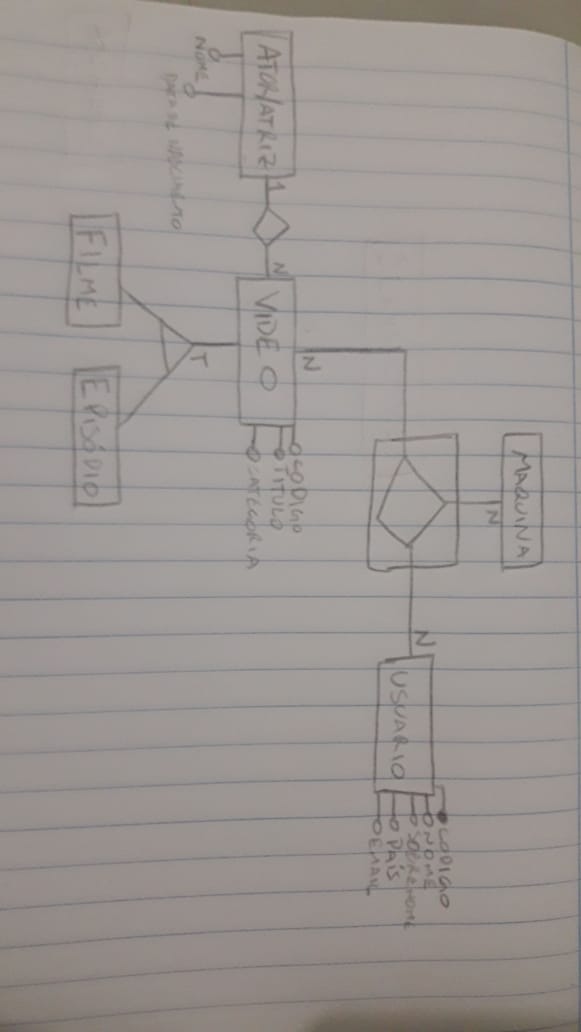 MAQUINA
N
N
USUARIO
CODIGO
NOME
SOBRENOME
PAÍS
EMAIL
N
ATOR/ATRIZ
1
N
VIDEO
CODIGO
TITULO
CATEGORIA
NOME
DATA DE NASCIMENTO
T
FILME
EPISÓDIO